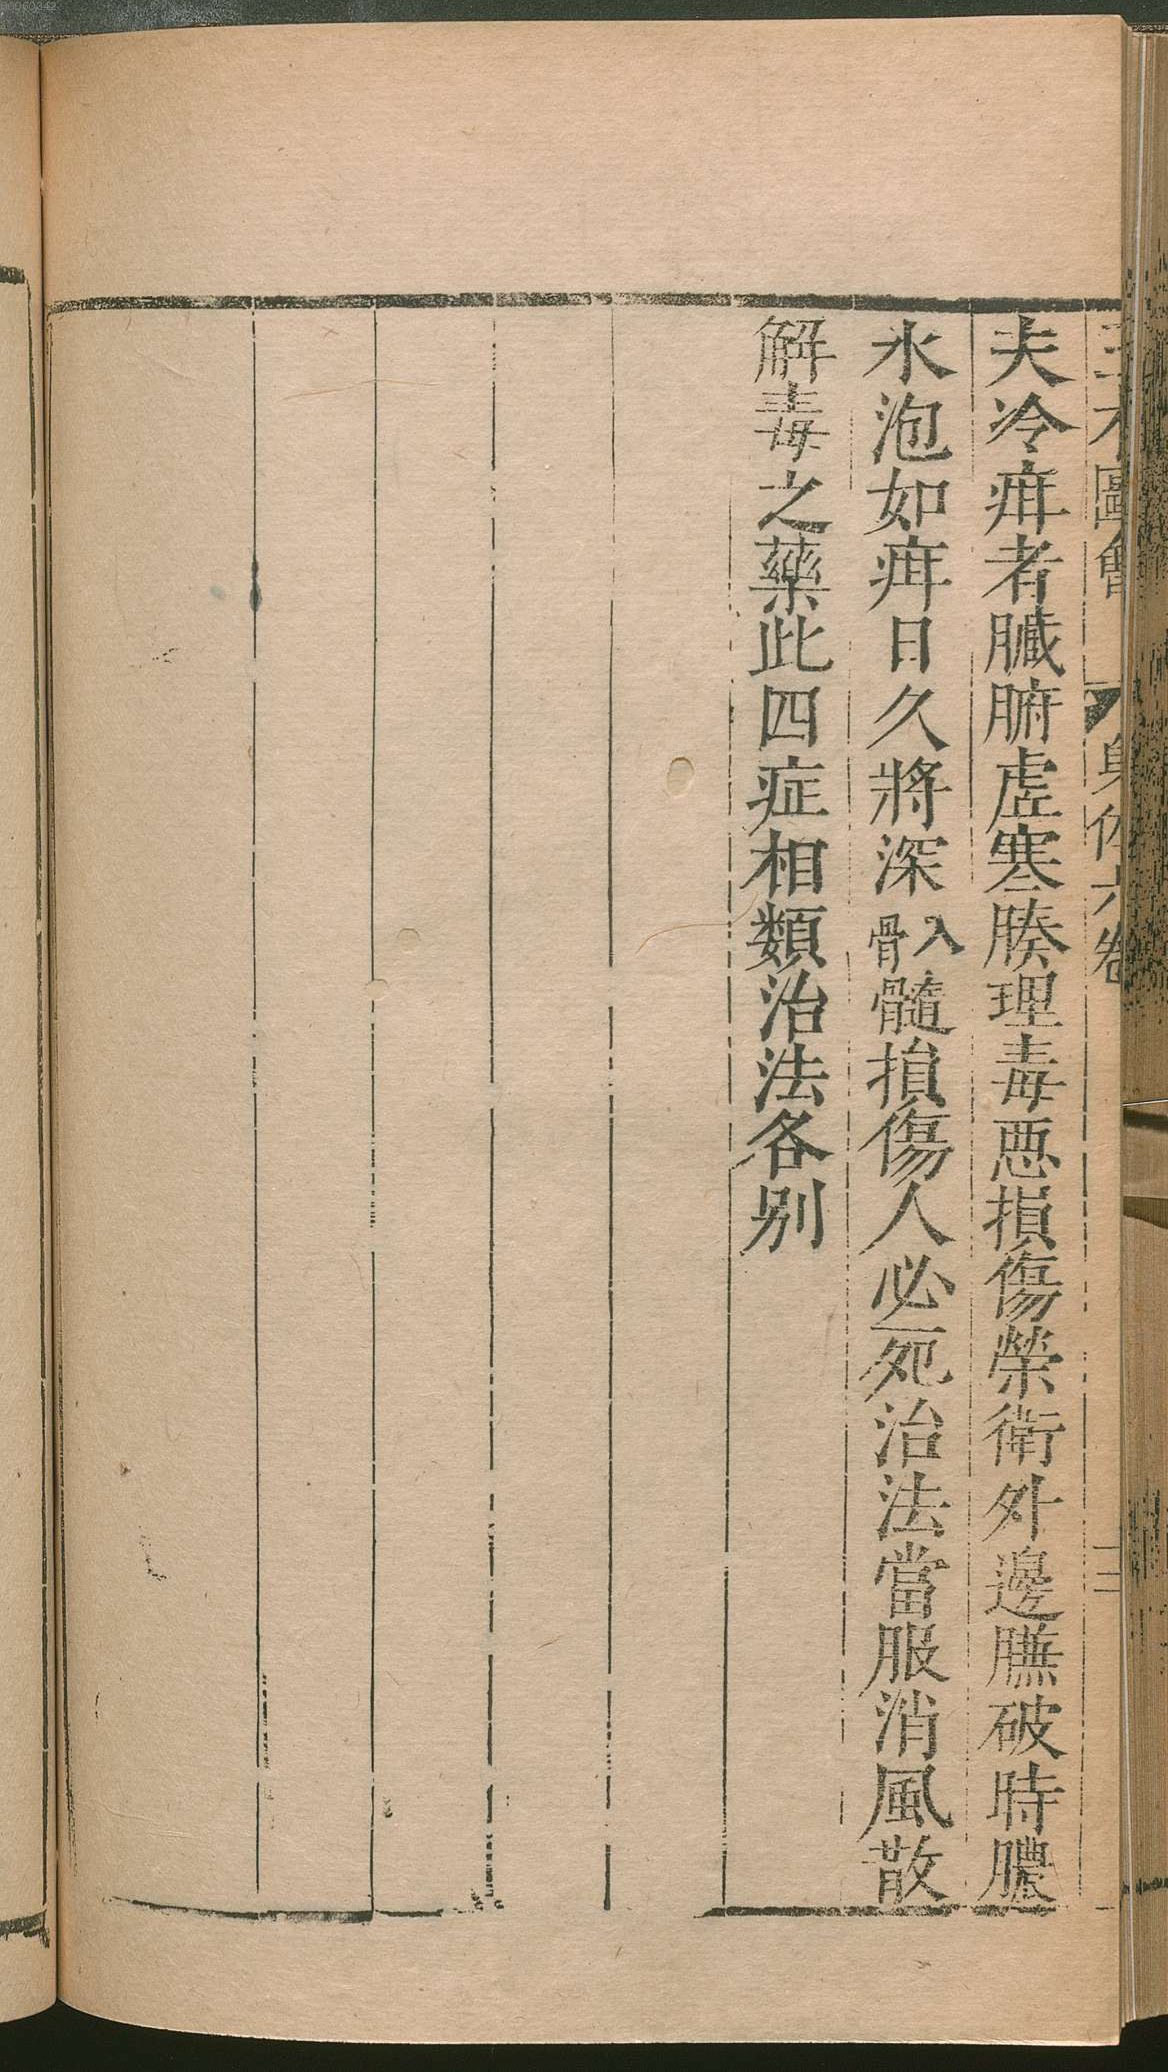 三才圖會 身体六卷 三
夫冷疳者臟腑虛寒腠理毒惡損傷榮衛外邊膴破時膿
水泡如疳日久將深入骨髓損傷人必死治法當服消風散
解毒之藥此四症相類治法各别